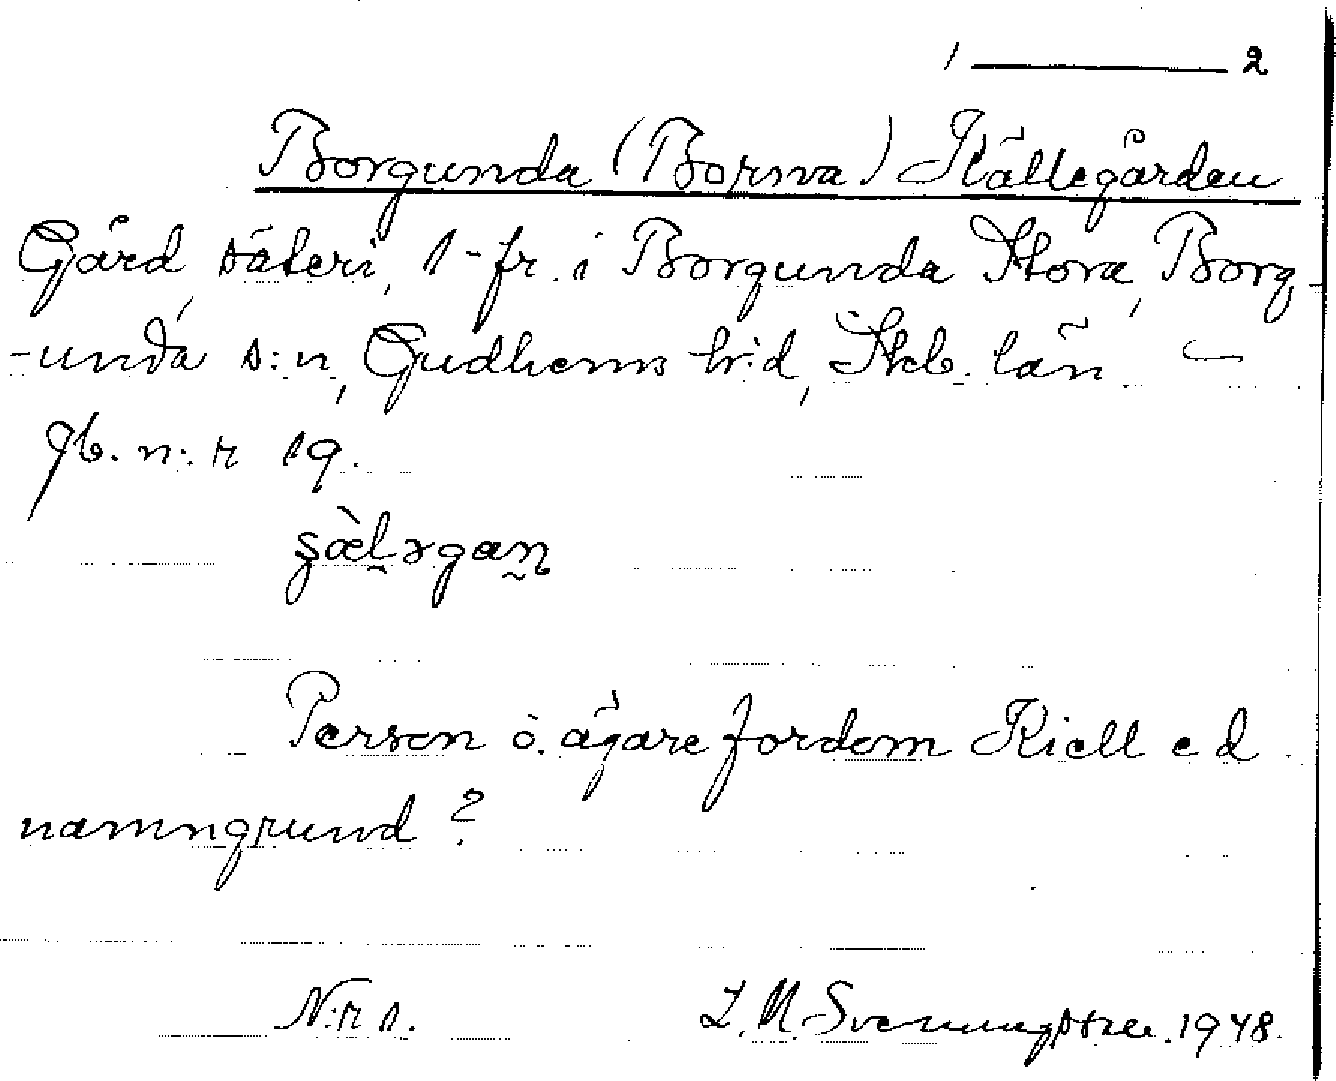 1 — 2
Borgunda (Borna) Källegården
Gård, säteri, 1-fr. i Borgunda Stora, Borg-
-unda s:n, Gudhems h:d, Skb. län
gb. n:r 19.
Person o. ägare fordom Kiell e d
namngrund?
N:r 1.
L. M. Svenungsson. 1948.